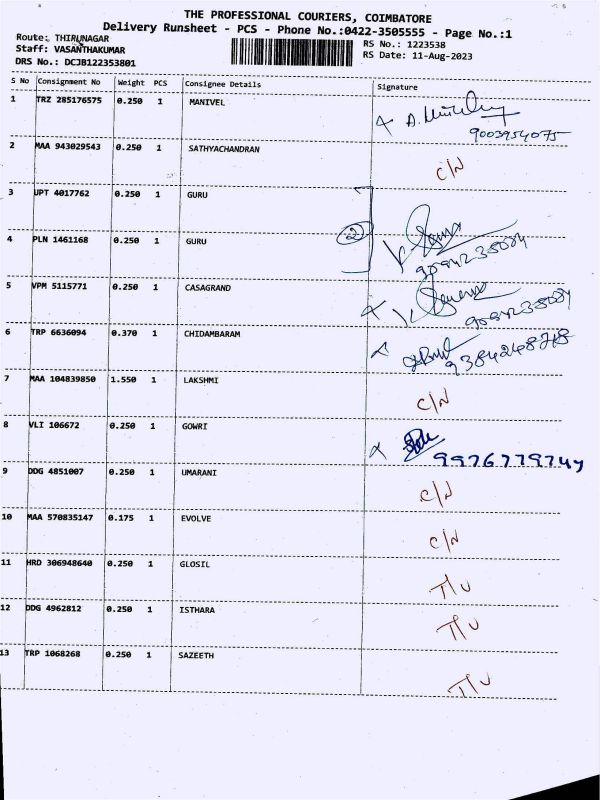 THE PROFESSIONAL COURIERS, COIMBATORE
Delivery Runsheet - PCS - Phone No.:0422-3505555 - Page No.:1
Route: THIRUNAGAR
Staff: VASANTHAKUMAR
DRS No.: DCJB122353801
RS No.: 1223538
RS Date: 11-Aug-2023
S No Consignment No Weight PCS Consignee Details Signature
1 TRZ 285176575 0.250 1 MANIVEL
9003954075
2 MAA 943029543 0.250 1 SATHYACHANDRAN C/N
3 UPT 4017762 0.250 1 GURU
2
4 PLN 1461168 0.250 1 GURU
5 VPM 5115771 0.250 1 CASAGRAND
6 TRP 6636094 0.370 1 CHIDAMBARAM
7 MAA 104839850 1.550 1 LAKSHMI C/N
8 VLI 106672 0.250 1 GOWRI
9976779744
9 DDG 4851007 0.250 1 UMARANI C/N
10 MAA 570835147 0.175 1 EVOLVE C/N
11 HRD 306948640 0.250 1 GLOSIL T/U
12 DDG 4962812 0.250 1 ISTHARA T/U
13 TRP 1068268 0.250 1 SAZEETH T/U